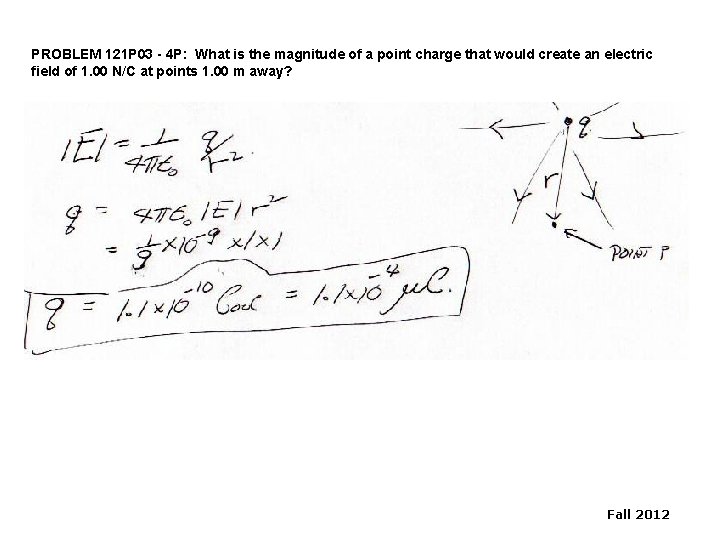 PROBLEM 121P03 - 4P: What is the magnitude of a point charge that would create an electric
field of 1.00 N/C at points 1.00 m away?
|E| = 1/4πε₀ q/r².
q
q = 4πε₀ |E| r²
r
= 1/9 × 10⁻⁹ × 1 × 1
POINT P
q = 1.1 × 10⁻¹⁰ Coul = 1.1 × 10⁻⁴ μC.
Fall 2012